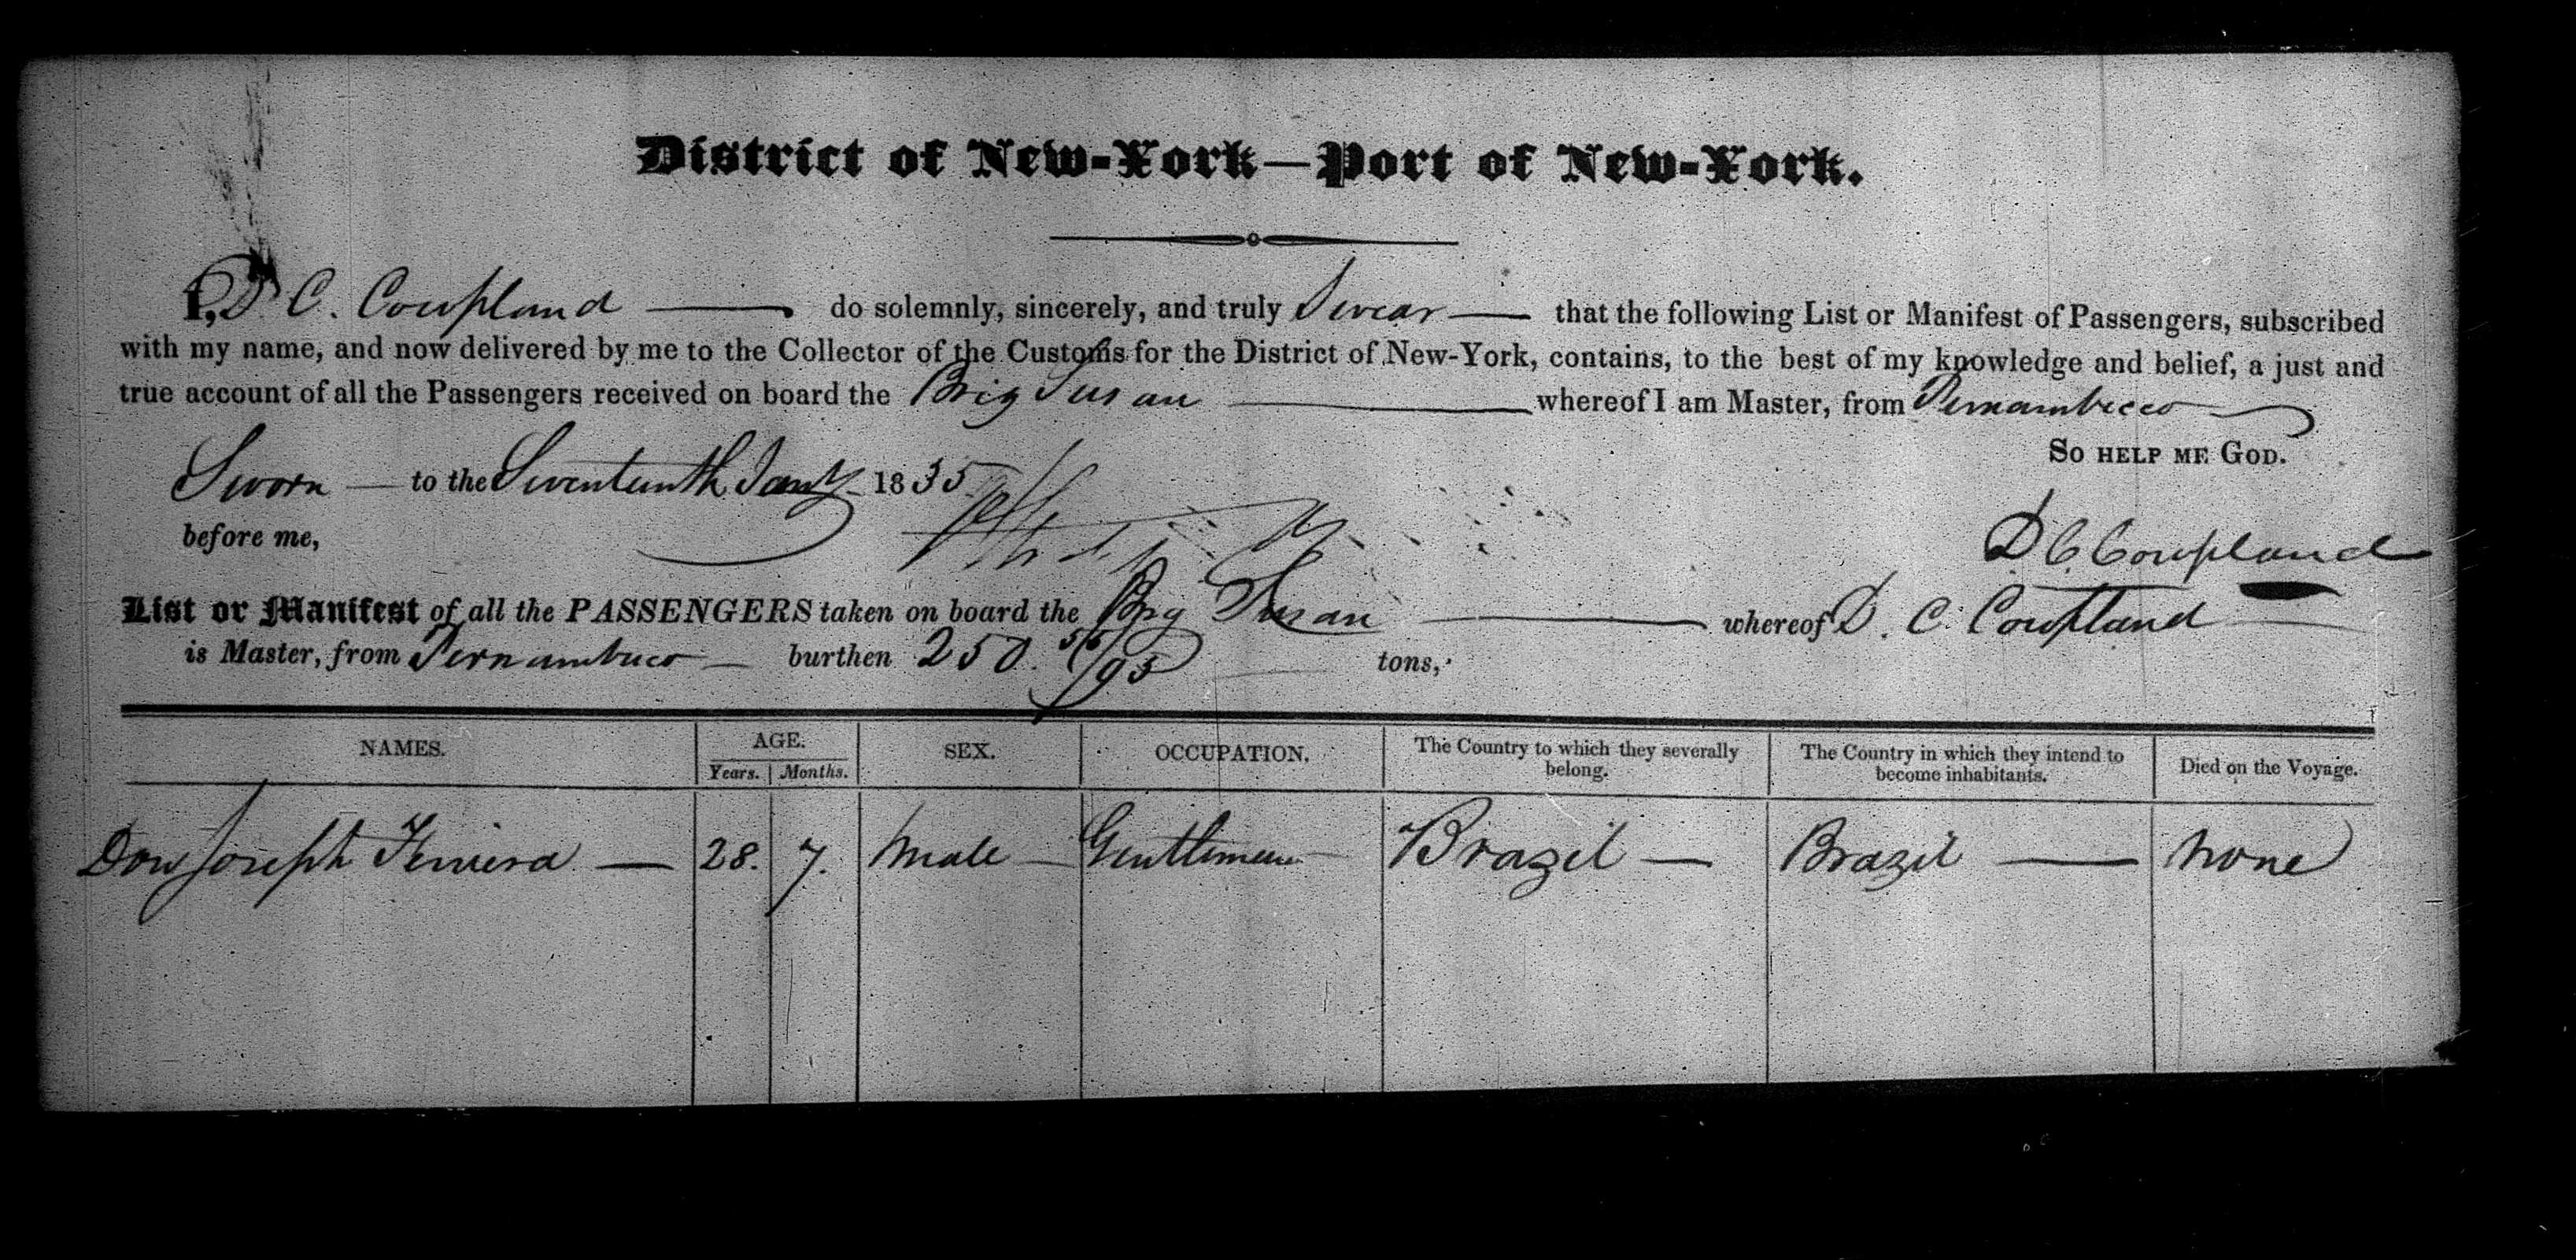 District of New-York—Port of New-York.
I, D. C. Cowpland — do solemnly, sincerely, and truly Swear — that the following List or Manifest of Passengers, subscribed
with my name, and now delivered by me to the Collector of the Customs for the District of New-York, contains, to the best of my knowledge and belief, a just and
true account of all the Passengers received on board the Brig Susan — whereof I am Master, from Pernambucco
So help me God.
Sworn — to the Seventeenth Jany 1835
before me,
D C Cowpland
List or Manifest of all the PASSENGERS taken on board the Brig Susan — whereof D. C. Cowpland
is Master, from Pernambuco — burthen 250. /95 tons,
NAMES. AGE. SEX. OCCUPATION. The Country to which they severally belong. The Country in which they intend to become inhabitants. Died on the Voyage.
Years. Months.
Don Joseph Ferriera — 28. 7. Male — Gentleman Brazil — Brazil — None